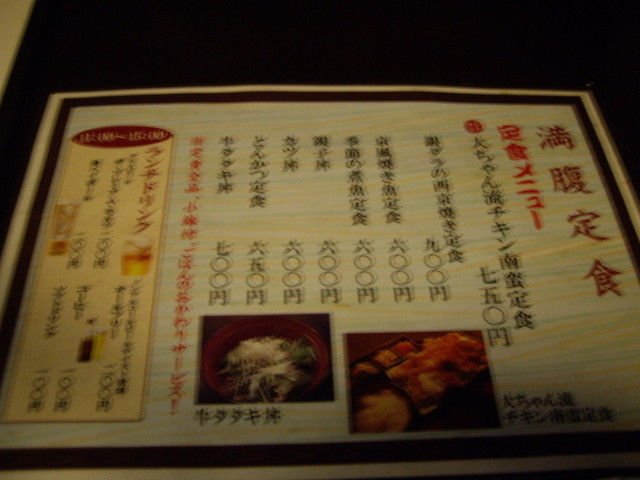 満腹定食
定食メニュー
大ちゃん流チキン南蛮定食 七五〇円
銀ダラの西京焼き定食 九〇〇円
京風焼き魚定食 六〇〇円
季節の煮魚定食 六〇〇円
親子丼 六〇〇円
カツ丼 六〇〇円
とんかつ定食 六五〇円
牛タタキ丼 七〇〇円
小鉢付、ごはんのおかわりサービス!
牛タタキ丼
大ちゃん流
チキン南蛮定食
ランチドリンク
一〇〇円
一〇〇円
一〇〇円
コーヒー 一〇〇円
ソフトドリンク 一〇〇円